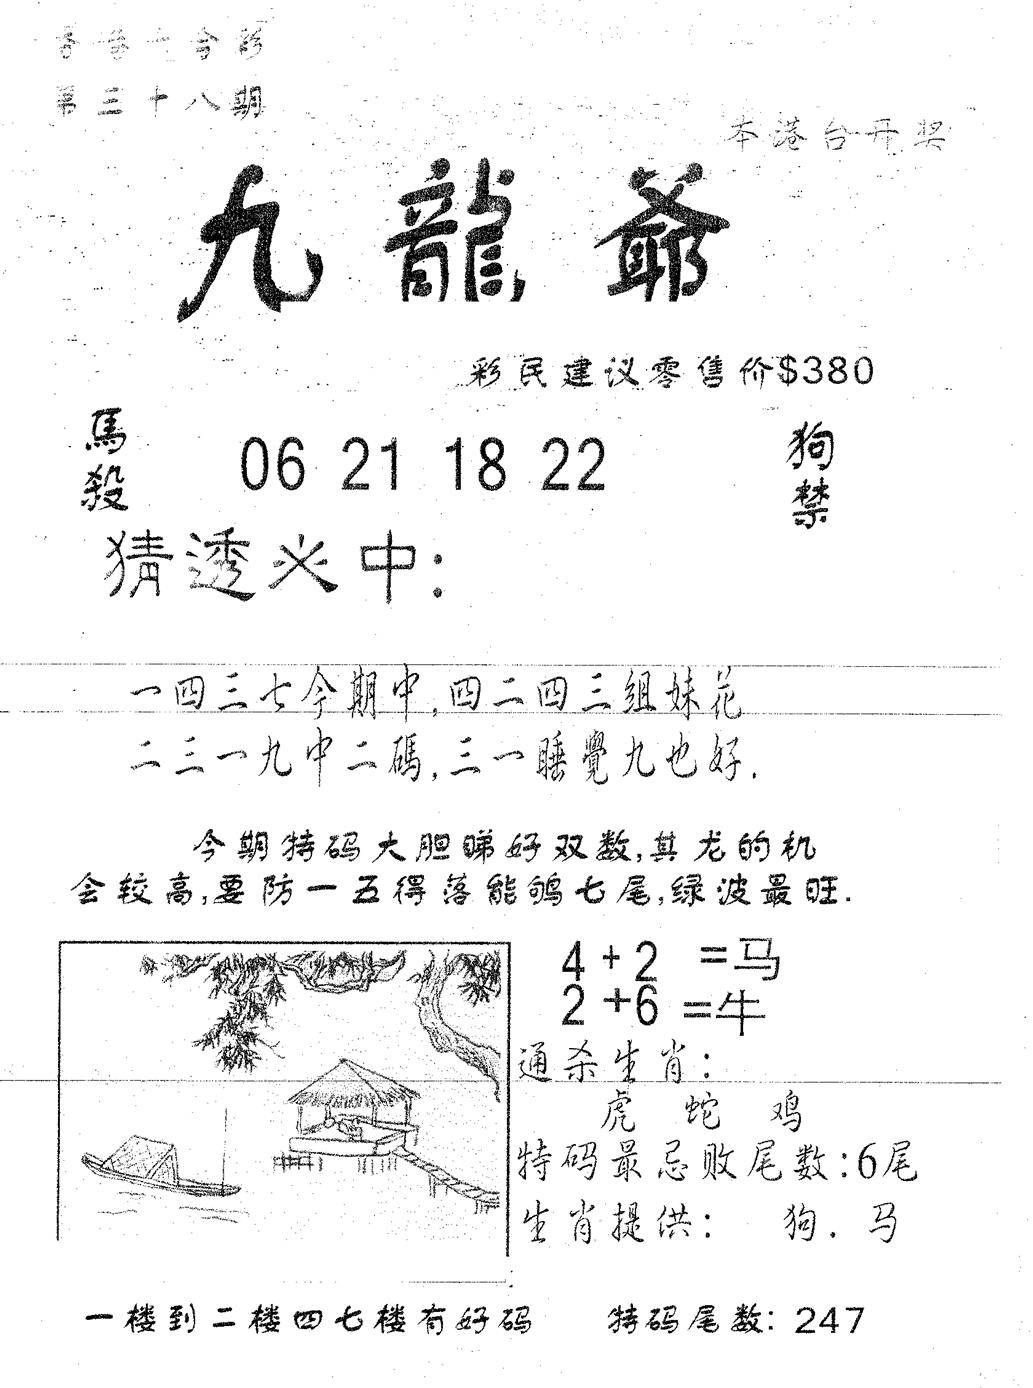 香港六合彩
第三十八期
本港台开奖
九龍爺
彩民建议零售价$380
馬殺
06 21 18 22
狗禁
猜透必中:
一四三七今期中,四二四三組妹花
二三一九中二碼,三一睡覺九也好.
今期特码大胆睇好双数,其龙的机
会较高,要防一五得落能鸲七尾,绿波最旺.
4+2 =马
2+6 =牛
通杀生肖:
虎 蛇 鸡
特码最忌败尾数:6尾
生肖提供: 狗. 马
一楼到二楼四七楼有好码 特码尾数: 247